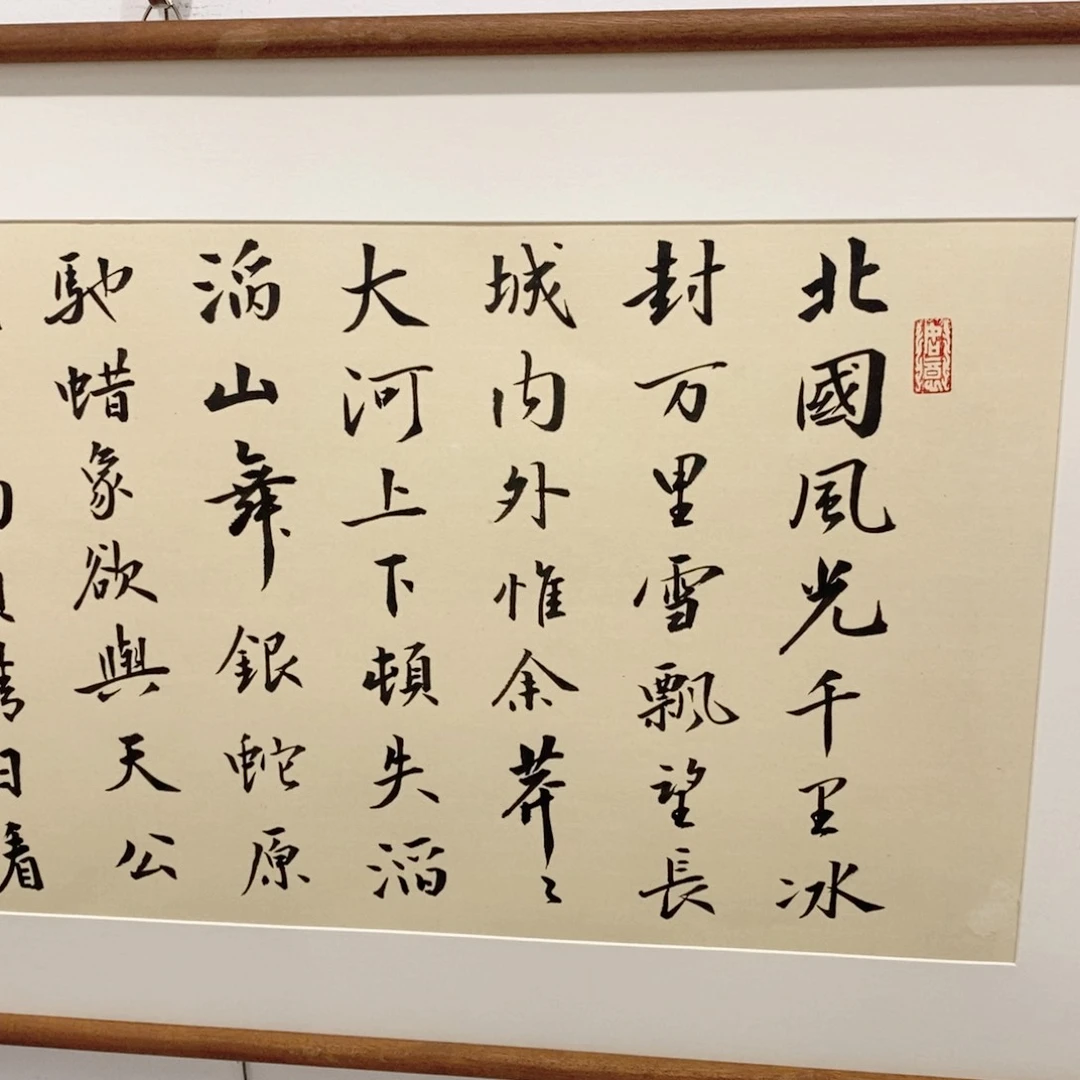 北國風光千里冰
封万里雪飄望長
城内外惟余莽〻
大河上下頓失滔
滔山舞銀蛇原
馳蜡象欲與天公
日看